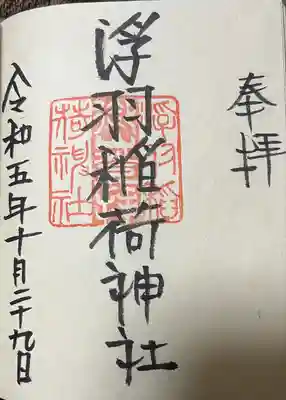 奉拝
浮羽稲荷神社
令和五年十月二十九日
浮羽稲
荷神社